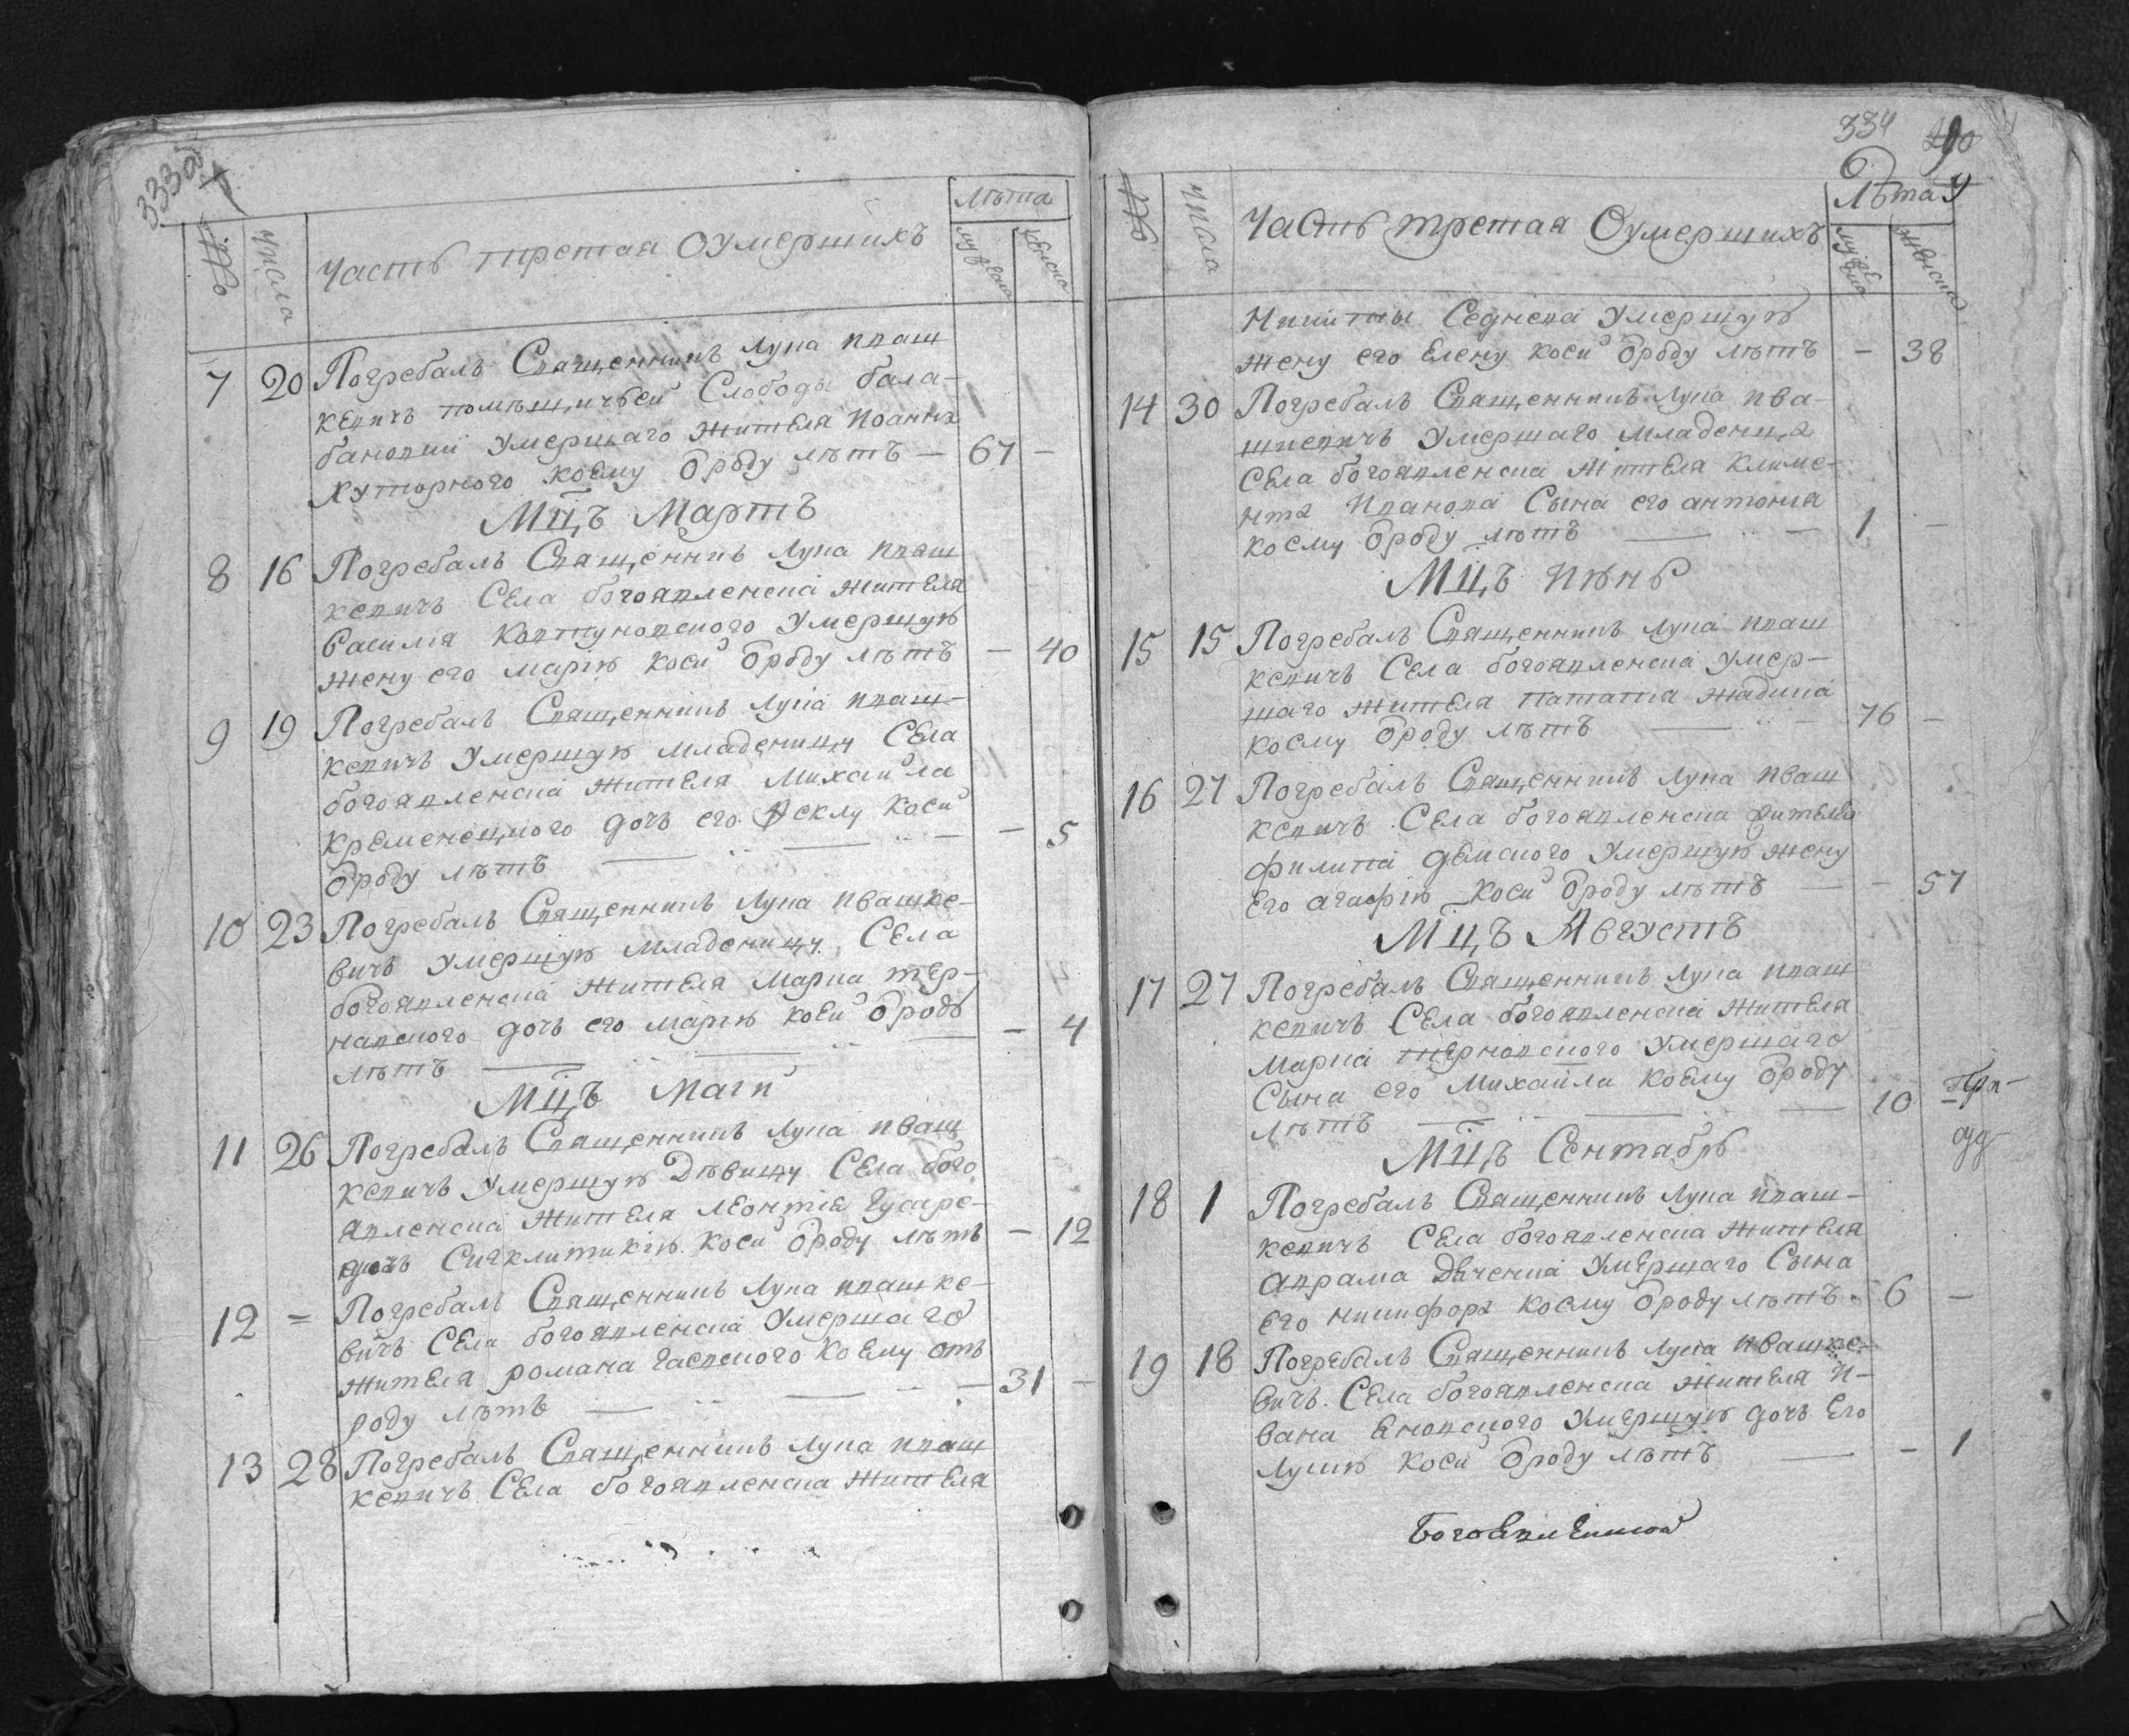 333
№
числа
Часть третая О умершихъ
Лѣта
мужеска
женска
7 20 Погребалъ Священникъ Лупа Иваш
кевичъ помѣщичьей Слободы бала-
бановки умершаго жителя Иоанна
Хуторного коему ѿроду лѣтъ — 67 —
Мцъ Мартъ
8 16 Погребалъ Священникъ Лупа Иваш
кевичъ Села богоявленска жителя
Василия Колтуновского умершую
жену его марию коей ѿроду лѣтъ — 40
9 19 Погребалъ Священникъ Лупа Иваш-
кевичъ умершую младеницу Села
богоявленска жителя Михайла
Кременецкого дочь его Феклу коей
ѿроду лѣтъ — 5
10 23 Погребалъ Священникъ Лупа Ивашке-
вичъ умершую младеницу Села
богоявленска жителя Марка тер-
навского дочь его марию коей ѿроду
лѣтъ — 4
Мцъ Маий
11 26 Погребалъ Священникъ Лупа Иваш
кевичъ умершую Дѣвицу Села бого
явленска жителя леонтия
дочь Сигклитикию коей ѿроду лѣтъ — 12
12 = Погребалъ Священникъ Лупа Ивашке-
вичъ Села богоявленска умершаго
жителя романа гаевского коему отъ
роду лѣтъ — 31 —
13 28 Погребалъ Священникъ Лупа Иваш
кевичъ Села богоявленска жителя
334
№
числа
Часть третая О умершихъ
Лѣта
мужеска
женска
Никиты Седнева умершую
жену его Елену коей ѿроду лѣтъ — 38
14 30 Погребалъ Священникъ Лупа Ива-
шкевичъ умершаго младенца
Села богоявленска жителя Климе-
нта Иванова Сына его антония
коему ѿроду лѣтъ — 1 —
Мцъ Июнь
15 15 Погребалъ Священникъ Лупа Иваш
кевичъ Села богоявленска умер-
шаго жителя Потапа жадика
коему ѿроду лѣтъ — 76 —
16 27 Погребалъ Священникъ Лупа Иваш
кевичъ Села богоявленска жителя
филипа демского умершую жену
его агафию коей ѿроду лѣтъ — 57
Мцъ Августъ
17 27 Погребалъ Священникъ Лупа Иваш
кевичъ Села богоявленска жителя
Марка терновского умершаго
Сына его Михайла коему ѿроду
лѣтъ — 10
Мцъ Сентябрь
18 1 Погребалъ Священникъ Лупа Иваш-
кевичъ Села богоявленска жителя
аврама Деченка умершаго Сына
его никифора коему ѿроду лѣтъ 6 —
19 18 Погребалъ Священникъ Лупа Ивашке-
вичъ Села богоявленска жителя И-
вана Еновского умершую дочь его
Лукию коей ѿроду лѣтъ — 1
Богоявленской